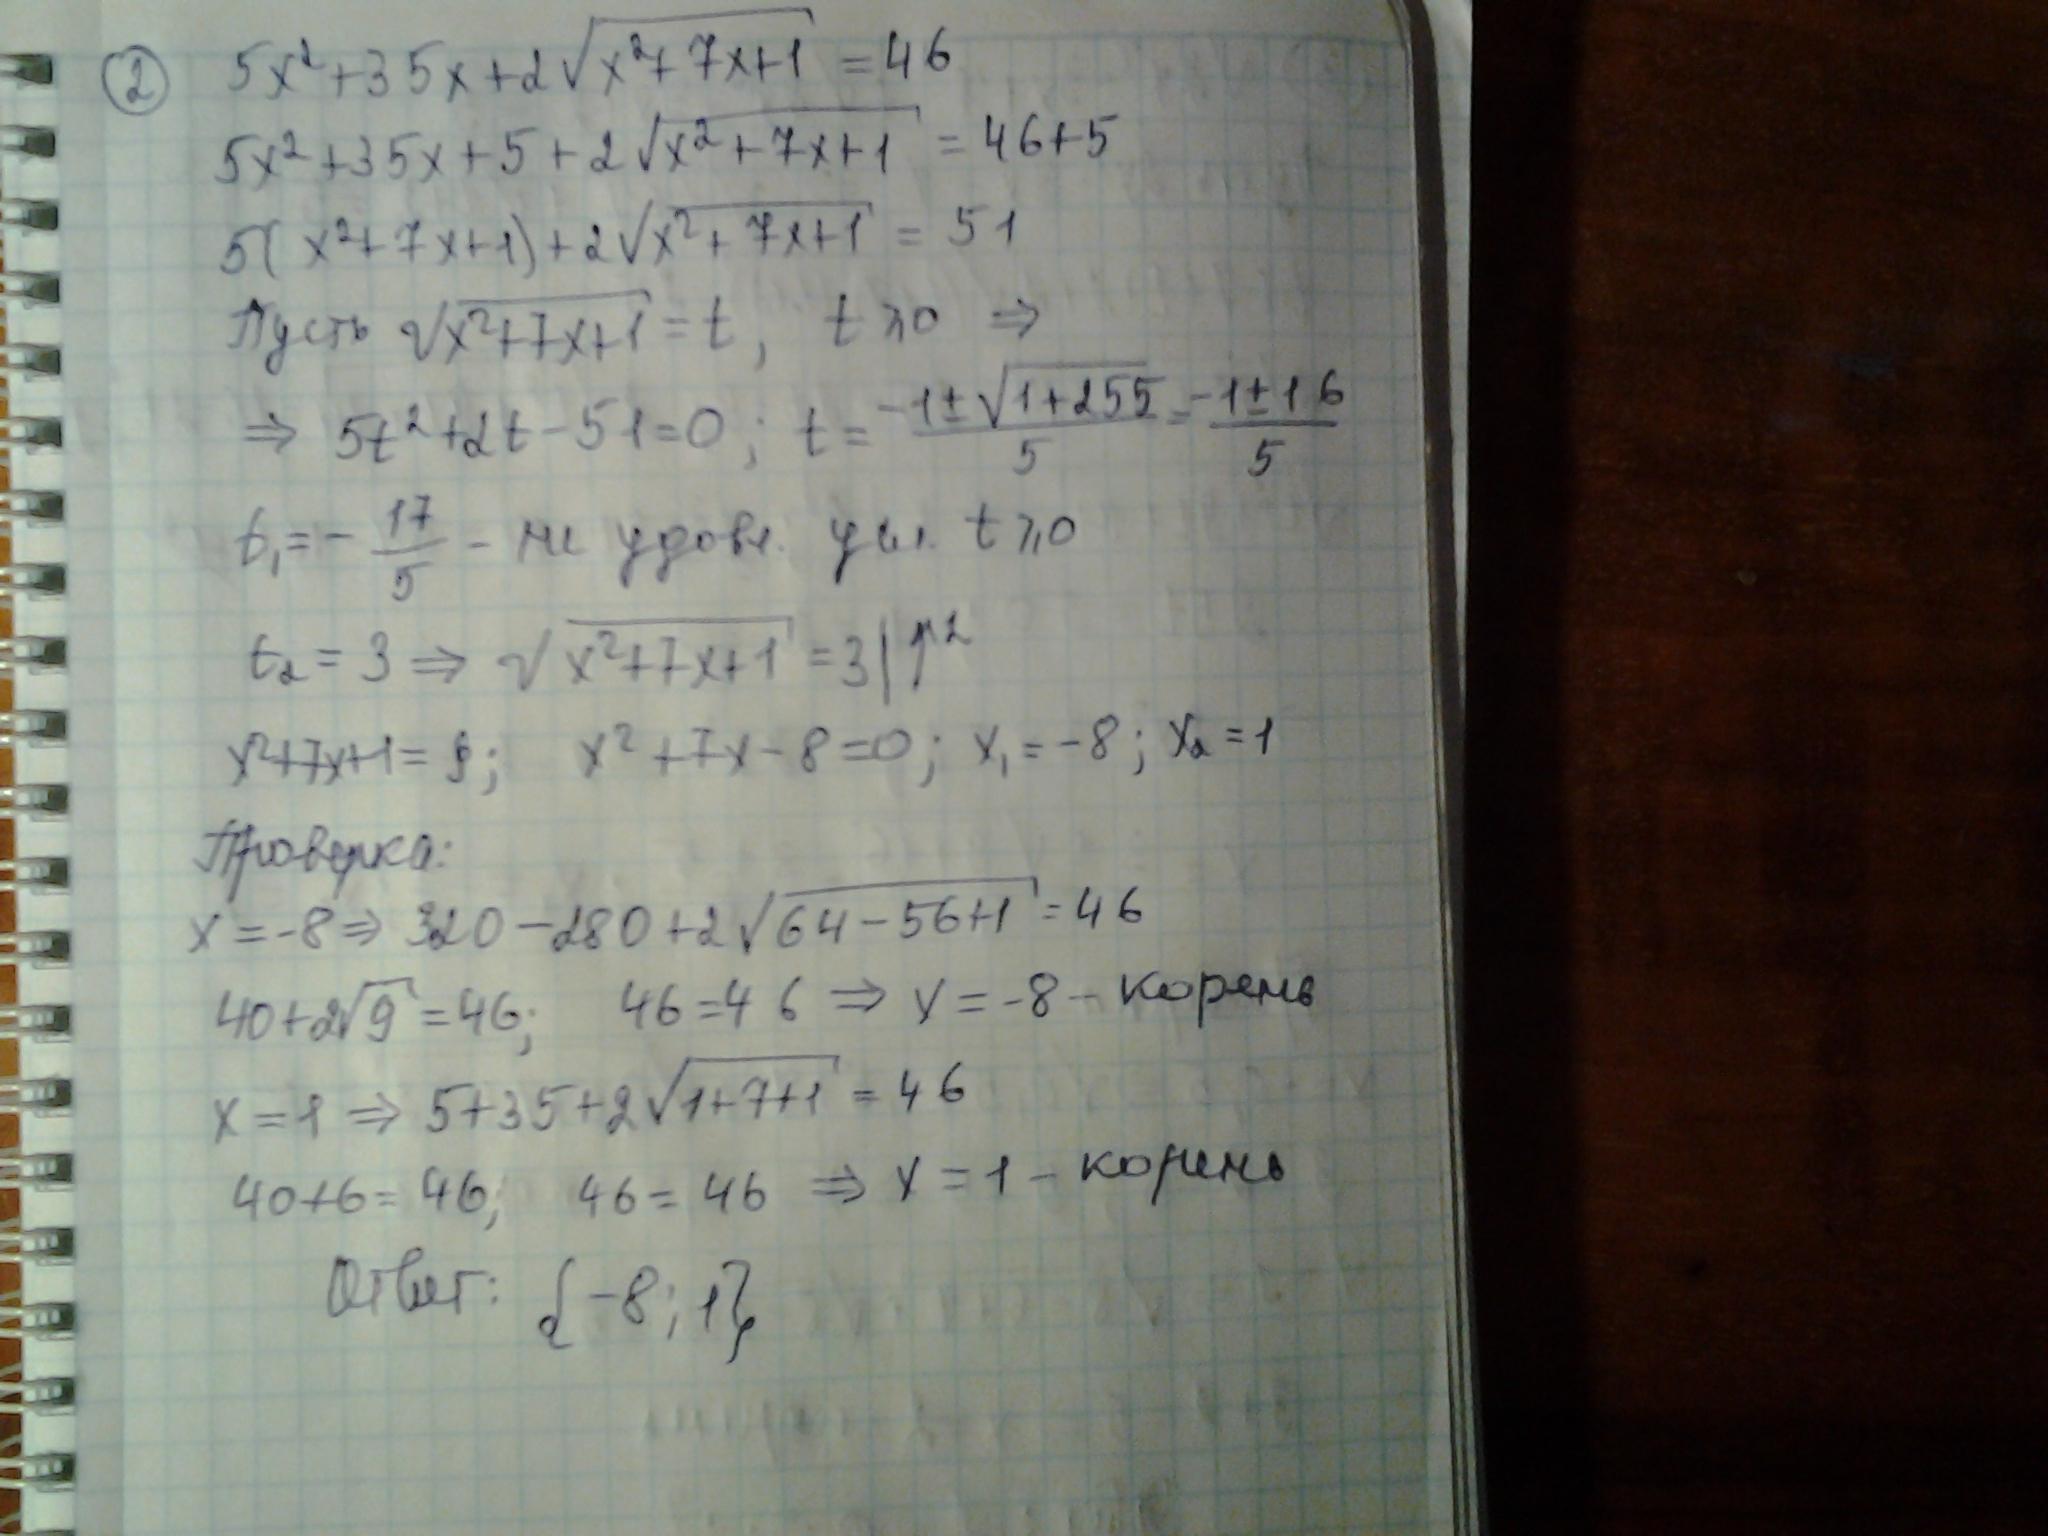 ② 5x²+35x+2√(x²+7x+1) = 46
5x²+35x+5+2√(x²+7x+1) = 46+5
5(x²+7x+1)+2√(x²+7x+1) = 51
Пусть √(x²+7x+1) = t, t ⩾ 0 ⇒
⇒ 5t²+2t-51=0; t = (-1±√(1+255))/5 = (-1±16)/5
t₁ = -17/5 - не удовл. усл. t ⩾ 0
t₂ = 3 ⇒ √(x²+7x+1) = 3 |↑²
x²+7x+1 = 9; x²+7x-8=0; x₁ = -8; x₂ = 1
Проверка:
x = -8 ⇒ 320-280+2√(64-56+1) = 46
40+2√9 = 46; 46 = 46 ⇒ x = -8 - корень
x = 1 ⇒ 5+35+2√(1+7+1) = 46
40+6 = 46; 46 = 46 ⇒ x = 1 - корень
Ответ: {-8; 1}